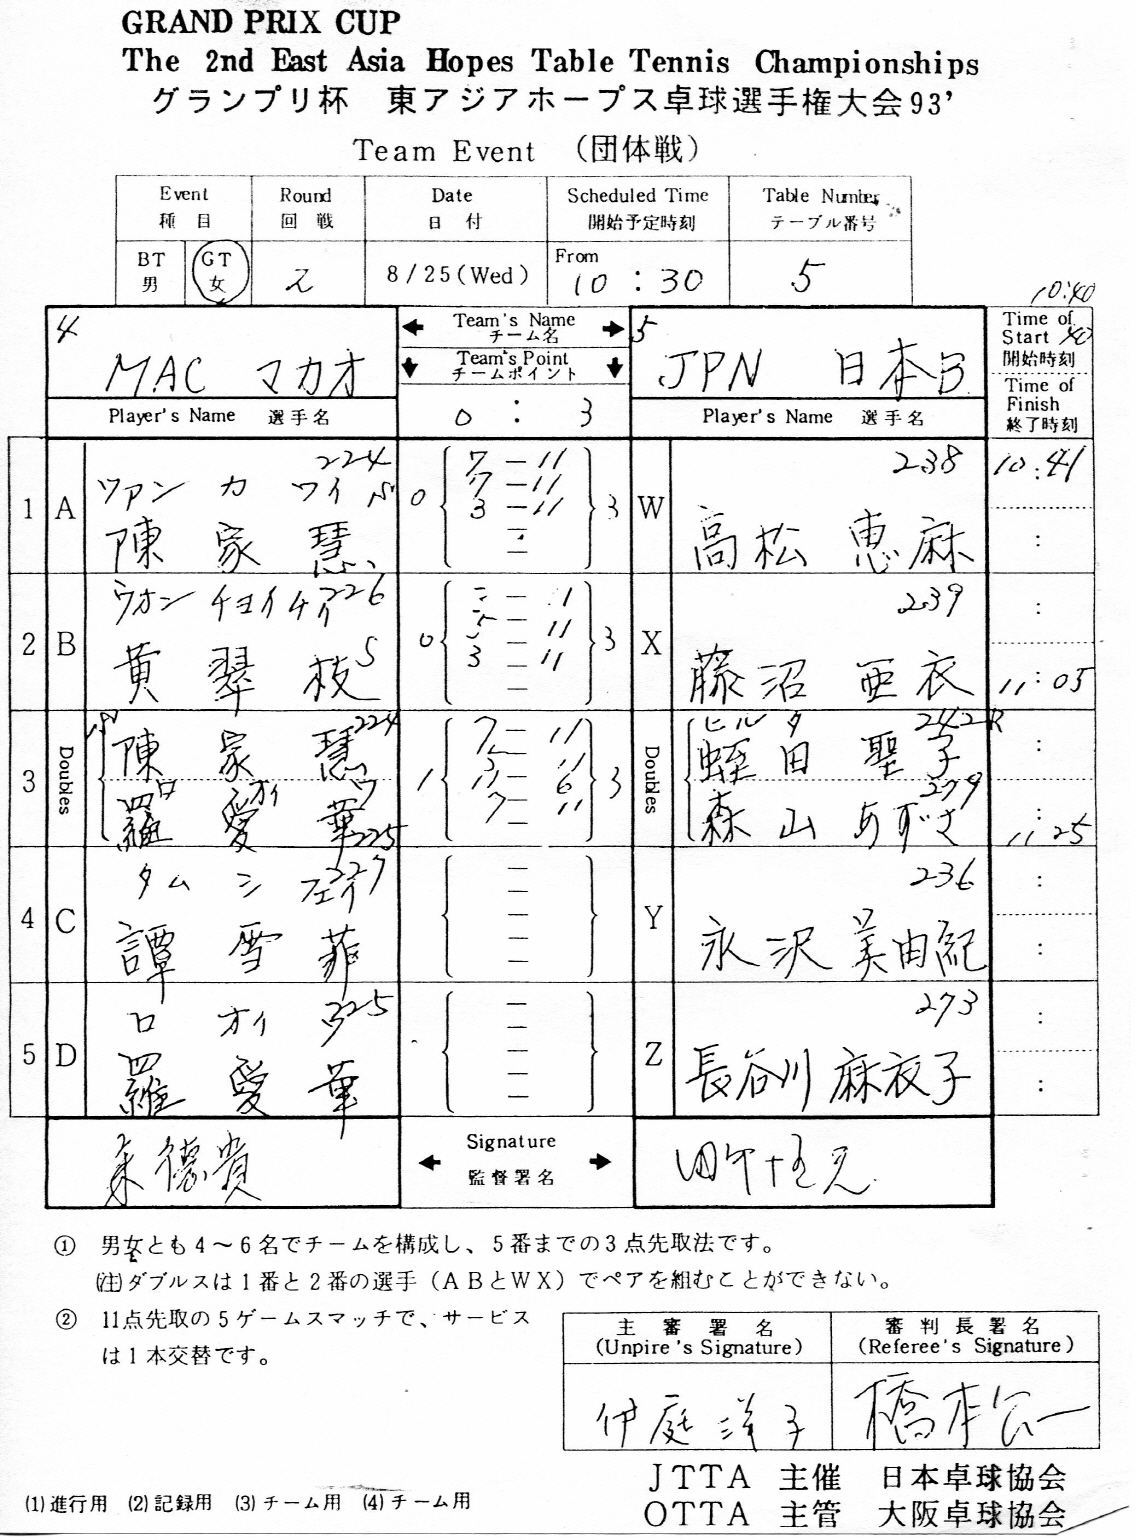 GRAND PRIX CUP
The 2nd East Asia Hopes Table Tennis Championships
グランプリ杯 東アジアホープス卓球選手権大会93'
Team Event (団体戦)
Event Round Date Scheduled Time Table Number
種目 回戦 日付 開始予定時刻 テーブル番号
BT 男 GT 女 2 8/25(Wed) From 10:30 5
10:40
4 MAC マカオ
Team's Name チーム名
5 JPN 日本B
Time of Start 40
開始時刻
Team's Point
チームポイント
0 : 3
Time of Finish
終了時刻
Player's Name 選手名
Player's Name 選手名
1 A 224
陳家慧
0 7-11 3
7-11
3-11
W 238
高松恵麻
10:41
2 B ウォン チョイ 226
黄翠枝 S
0 3
11
3-11
X 239
藤沼亜衣
11:05
3 Doubles
陳家慧 224
羅愛華 225
1 7-11 3
11
11-6
7-11
Doubles
ヒルタ 242
蛭田聖子
森山あずさ 279
11:25
4 C タム シ フェイ 227
譚雪菲
Y 236
永沢美由紀
5 D ロ オイ 225
羅愛華
Z 273
長谷川麻衣子
Signature
監督署名
① 男女とも4〜6名でチームを構成し、5番までの3点先取法です。
(注)ダブルスは1番と2番の選手(ABとWX)でペアを組むことができない。
② 11点先取の5ゲームスマッチで、サービス
は1本交替です。
主審署名 審判長署名
(Unpire's Signature) (Referee's Signature)
伊庭洋子 橋本公一
JTTA 主催 日本卓球協会
OTTA 主管 大阪卓球協会
(1)進行用 (2)記録用 (3)チーム用 (4)チーム用